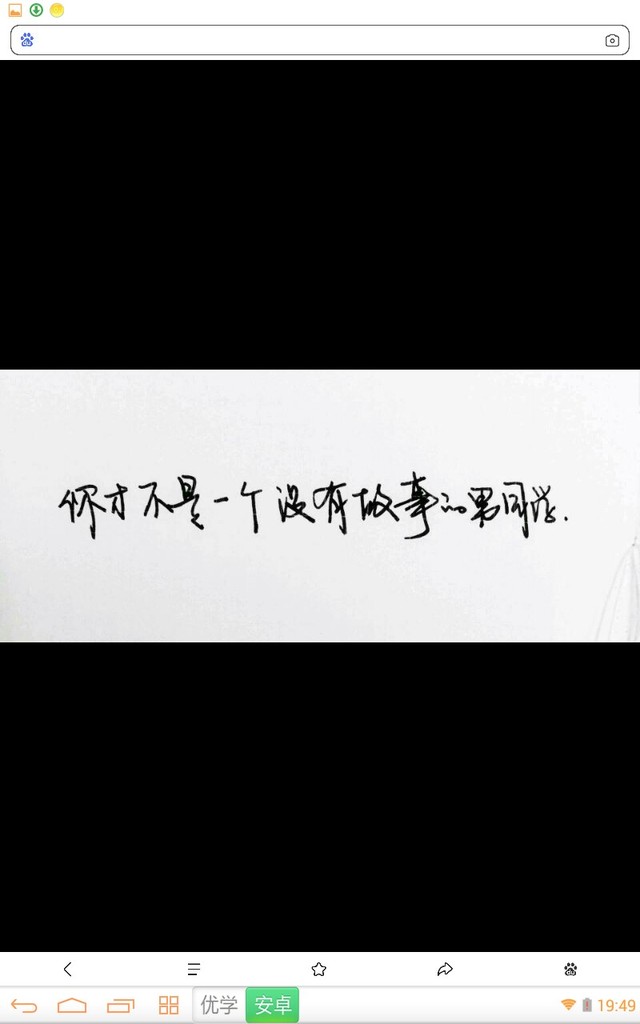 你才不是一个没有故事的男同学.
优学 安卓 19:49